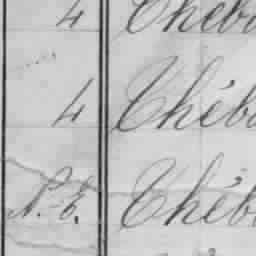 4 Théb
4 Théb
N.E. Théb